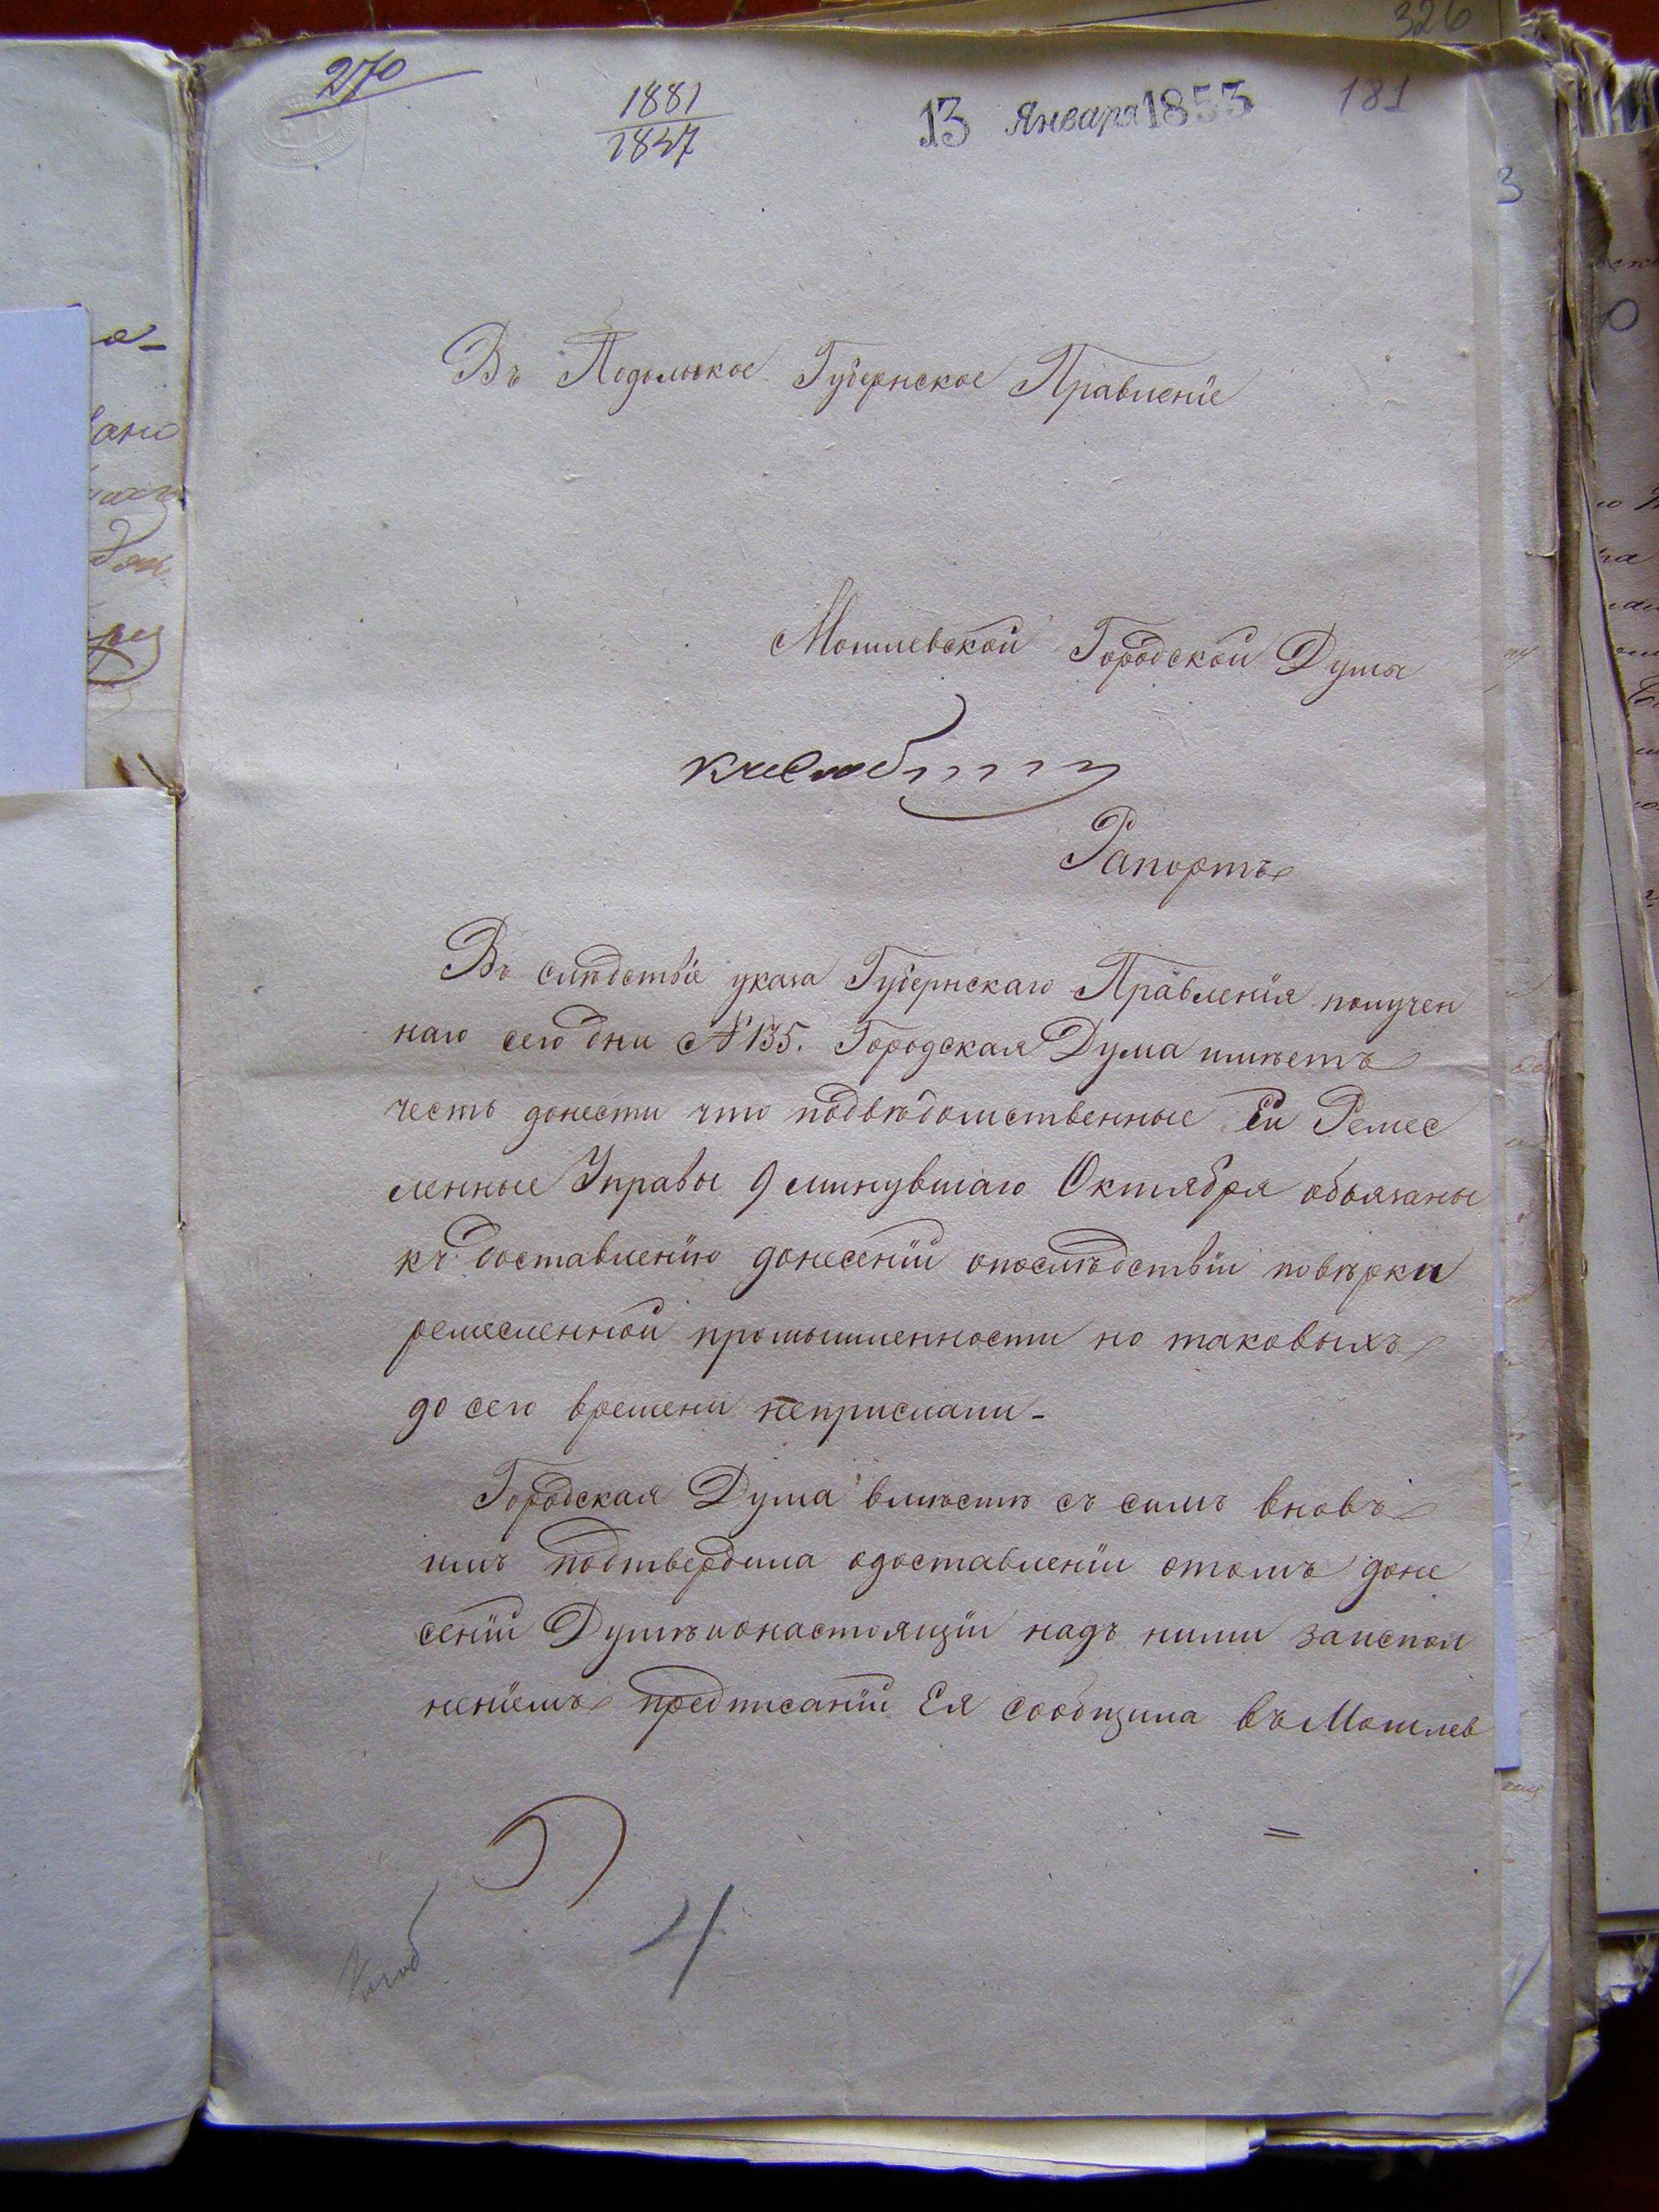 326
270
1881
1847
13 Января 1853
181
3
Въ Подольское Губернское Правленіе
Могилевской Городской Думы
Рапортъ
Въ слѣдствіе указа Губернскаго Правленія получен
наго сего дни № 135. Городская Дума имѣетъ
честь донести что подвѣдомственные Ей Ремес
ленные Управы 9 минувшаго Октября обязаны
къ доставленію донесеній опослѣдствіи повѣрки
ремесленной промышленности но таковыхъ
до сего времени неприслали-
Городская Дума вмѣстѣ съ симъ вновь
имъ подтвердила одоставленіи отомъ доне
сеній Думѣ и онастоящіи надъ ними заиспол
неніемъ предписаній Ея сообщила въ Могилев
=
4